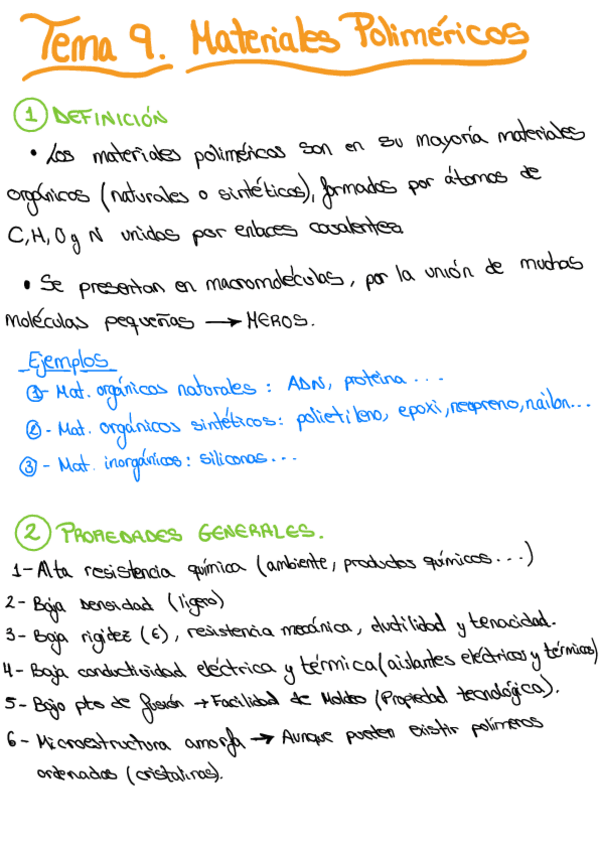 Tema 9. Materiales Poliméricos
1 DEFINICIÓN
• Los materiales poliméricos son en su mayoría materiales
orgánicos (naturales o sintéticos), formados por átomos de
C, H, O y N unidos por enlaces covalentes
• Se presentan en macromoléculas, por la unión de muchas
moléculas pequeñas → MEROS.
Ejemplos
1 - Mat. orgánicos naturales: ADN, proteina...
2 - Mat. orgánicos sintéticos: polietileno, epoxi, neopreno, nailon...
3 - Mat. inorgánicos: siliconas...
2 PROPIEDADES GENERALES.
1 - Alta resistencia química (ambiente, productos químicos...)
2 - Baja Densidad (ligero)
3 - Baja rigidez (E), resistencia mecánica, ductilidad y tenacidad.
4 - Baja conductividad eléctrica y térmica (aislantes eléctricos y térmicos)
5 - Bajo pto de fusión → Facilidad de Moldeo (Propiedad tecnológica).
6 - Microestructura amorfa → Aunque pueden existir polímeros
ordenados (cristalinos).